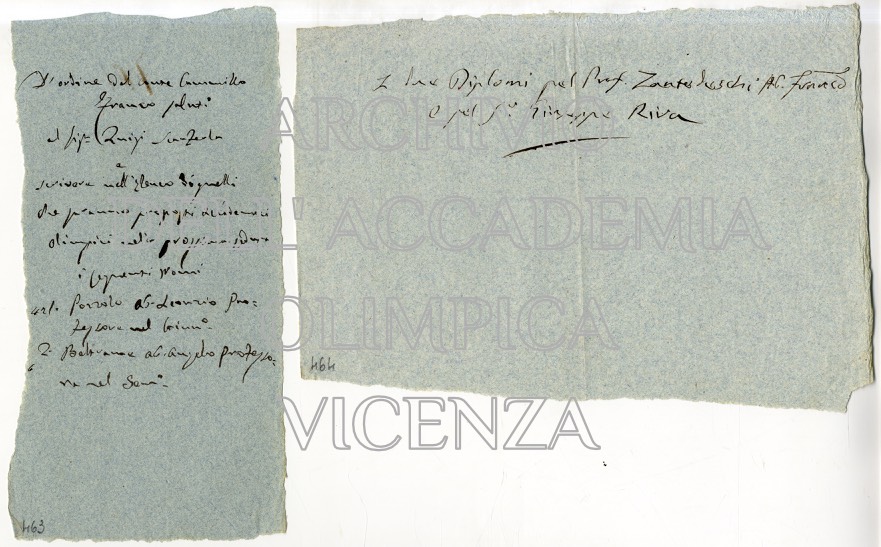 D'ordine del conte Cammillo
Franco saluti
al sigr. Luigi
a
scrivere nell'Elenco di quelli
che saranno proposti accademici
olimpici nella prossima seduta
i seguenti Nomi
Pozzolo ab. Leonzio Pro-
fessore nel
2. Beltrame ab. Angelo Professo-
re nel Semo.
463
I due Diplomi pel Prof. Zantedeschi Ab. Francesco
e pel Sr. Giuseppe Riva
464
ARCHIVIO
DELL' ACCADEMIA
OLIMPICA
VICENZA